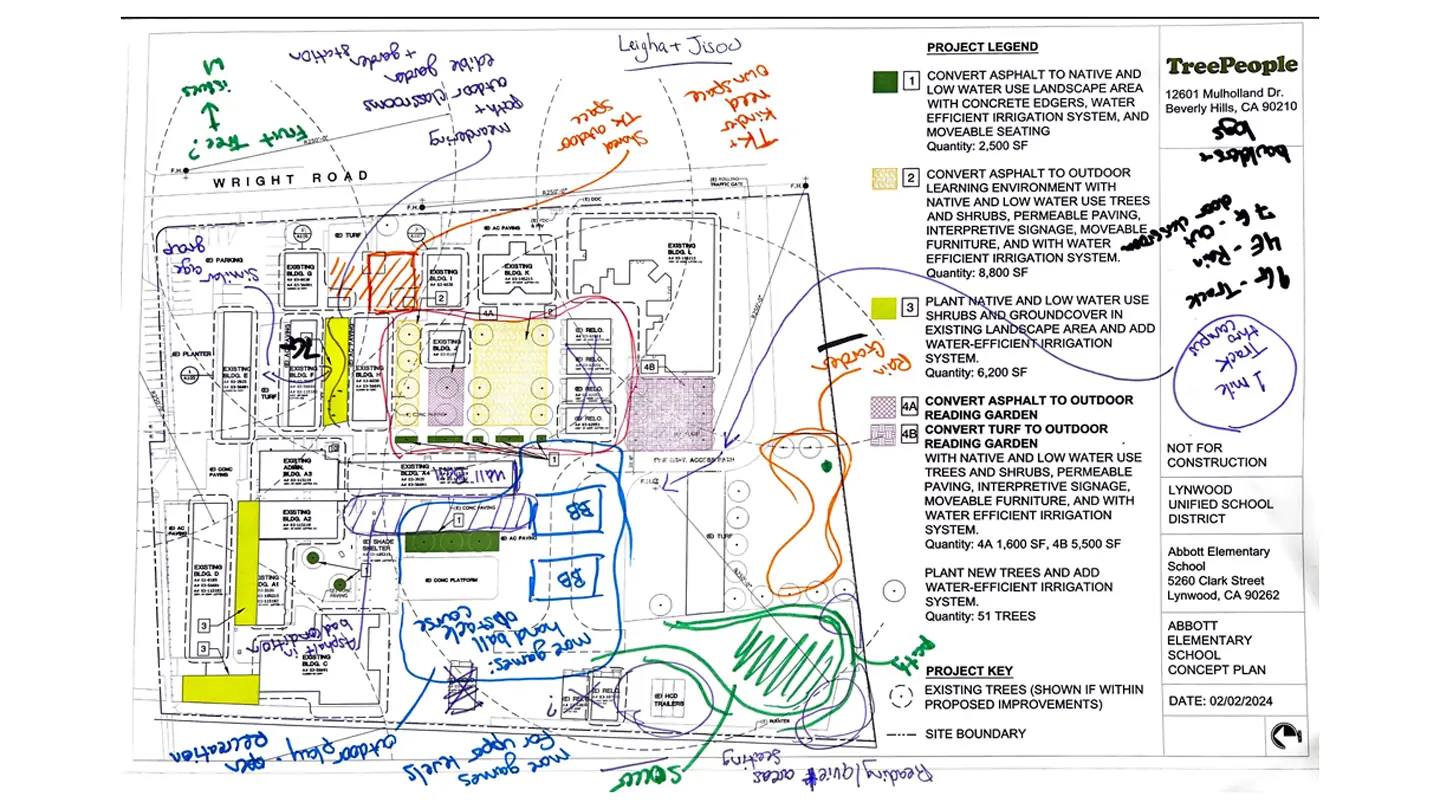 Leigha + Jisoo
meandering
path +
outdoor classrooms
edible garden
+ garden
station
Fruit Tree?
issues
w/
Shared
TK outdoor
space
TK +
kinder
need
own space
WRIGHT ROAD
F.H.
F.H.
F.H.
R250'-0"
R250'-0"
R250'-0"
R250'-0"
(E) ROLLING
TRAFFIC GATE
(E) DDC
(E) TURF
(E) AC PAVING
(E) PARKING
Similar age
group
EXISTING
BLDG. G
EXISTING
BLDG. I
EXISTING
BLDG. K
EXISTING
BLDG. L
2
4A
2
EXISTING
BLDG. J
(E) RELO.
(E) RELO.
(E) RELO.
(E) RELO.
4B
(E) PLANTER
EXISTING
BLDG. E
EXISTING
BLDG. F
(E) TURF
EXISTING
BLDG. H
1
(E) CONC
PAVING
EXISTING
ADMIN.
BLDG. A3
EXISTING
BLDG. A4
Wall Ball
FIRE LANE ACCESS PATH
(E) AC
PAVING
EXISTING
BLDG. A2
(E) CONC PAVING
1
(E) AC PAVING
BB
BB
(E) SHADE
SHELTER
1
(E) TURF
EXISTING
BLDG. D
EXISTING
BLDG. A1
(E) CONC PLATFORM
3
3
Asphalt in
bad condition
EXISTING
BLDG. C
more games:
hand ball
obstacle
course
(E) RELO.
(E) RELO.
?
(E) HCD
TRAILERS
(E) PLANTER
Rain
Garden
path
outdoor play - open
Recreation
more games
for upper levels
soccer
Reading/quiet areas
seating
PROJECT LEGEND
1 CONVERT ASPHALT TO NATIVE AND
LOW WATER USE LANDSCAPE AREA
WITH CONCRETE EDGERS, WATER
EFFICIENT IRRIGATION SYSTEM, AND
MOVEABLE SEATING
Quantity: 2,500 SF
2 CONVERT ASPHALT TO OUTDOOR
LEARNING ENVIRONMENT WITH
NATIVE AND LOW WATER USE TREES
AND SHRUBS, PERMEABLE PAVING,
INTERPRETIVE SIGNAGE, MOVEABLE
FURNITURE, AND WITH WATER
EFFICIENT IRRIGATION SYSTEM.
Quantity: 8,800 SF
3 PLANT NATIVE AND LOW WATER USE
SHRUBS AND GROUNDCOVER IN
EXISTING LANDSCAPE AREA AND ADD
WATER-EFFICIENT IRRIGATION
SYSTEM.
Quantity: 6,200 SF
4A CONVERT ASPHALT TO OUTDOOR
READING GARDEN
4B CONVERT TURF TO OUTDOOR
READING GARDEN
WITH NATIVE AND LOW WATER USE
TREES AND SHRUBS, PERMEABLE
PAVING, INTERPRETIVE SIGNAGE,
MOVEABLE FURNITURE, AND WITH
WATER EFFICIENT IRRIGATION
SYSTEM.
Quantity: 4A 1,600 SF, 4B 5,500 SF
PLANT NEW TREES AND ADD
WATER-EFFICIENT IRRIGATION
SYSTEM.
Quantity: 51 TREES
PROJECT KEY
EXISTING TREES (SHOWN IF WITHIN
PROPOSED IMPROVEMENTS)
SITE BOUNDARY
TreePeople
12601 Mulholland Dr.
Beverly Hills, CA 90210
boulders +
logs
- Track
4E - Rain
- Out
door classroom
1 mile
Track
thro
campus
NOT FOR
CONSTRUCTION
LYNWOOD
UNIFIED SCHOOL
DISTRICT
Abbott Elementary
School
5260 Clark Street
Lynwood, CA 90262
ABBOTT
ELEMENTARY
SCHOOL
CONCEPT PLAN
DATE: 02/02/2024